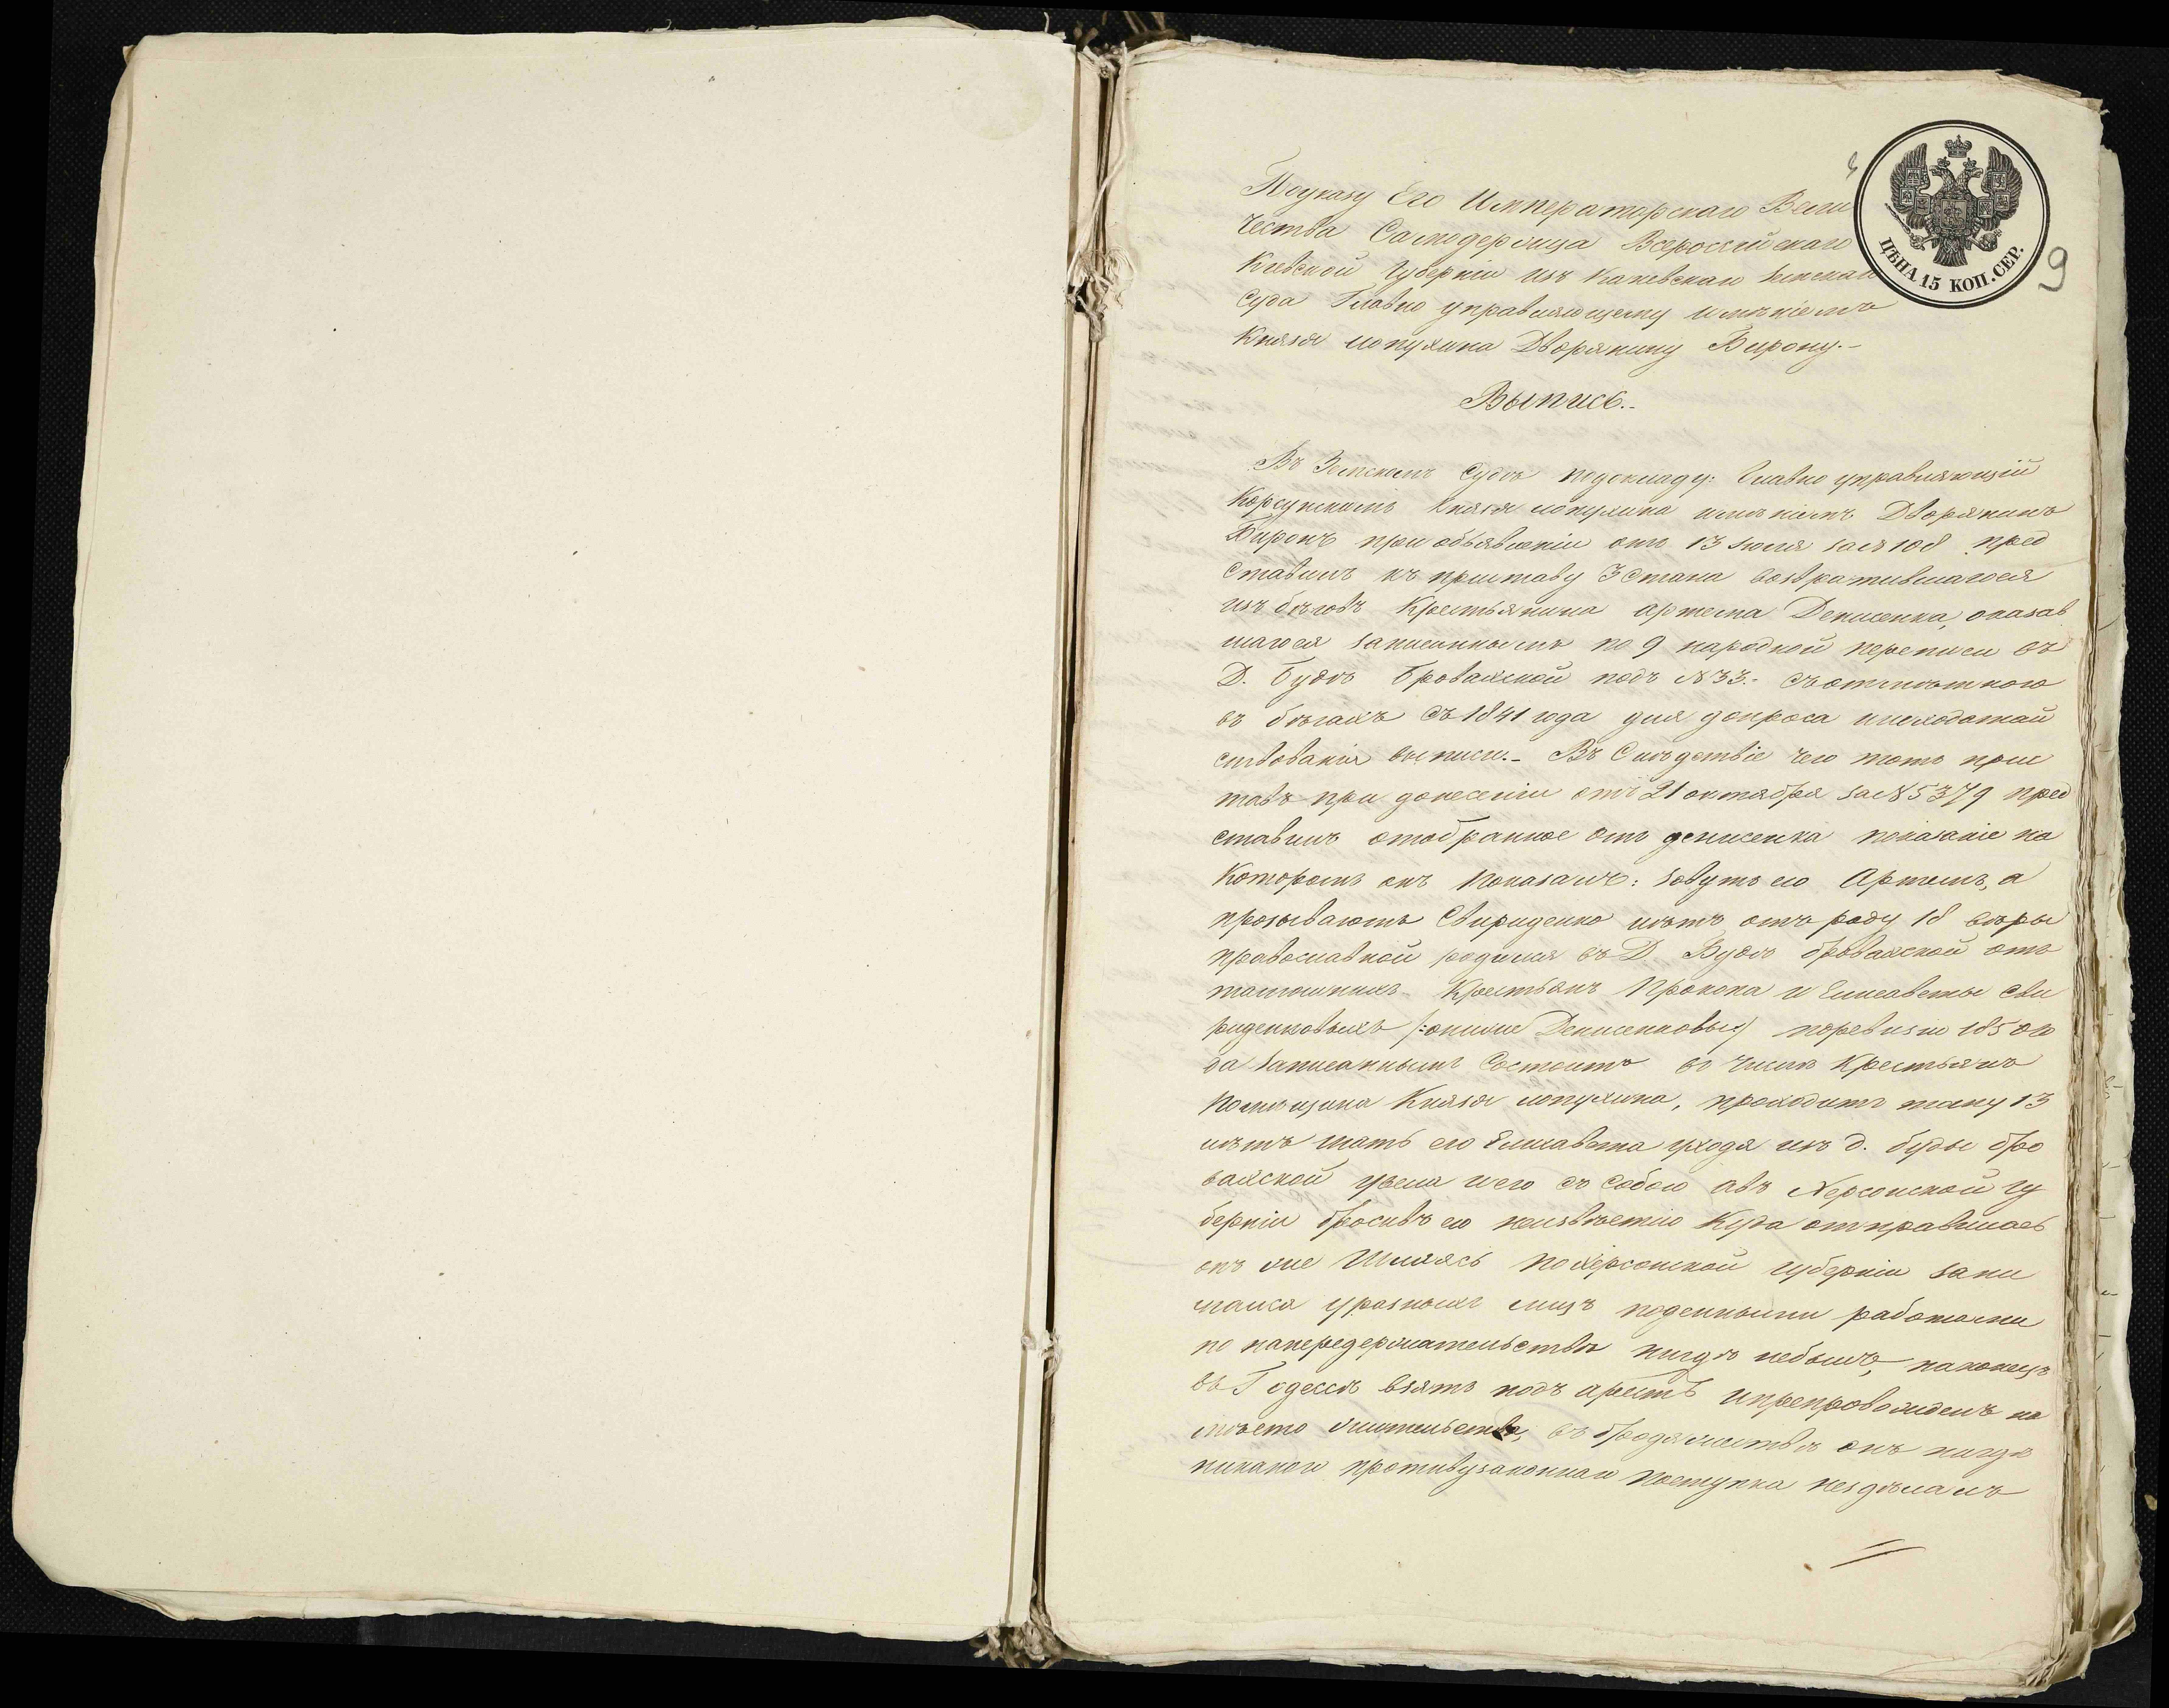 По указу Его Императорскаго Вели
чества Самодержца Всероссійскаго
Кіевской Губерніи изъ Каневскаго Земскаго
Суда Главно управляющему имѣніемъ
Князя лопухина Дворянину Бирону.-
ЦѢНА 15 КОП. СЕР.
9
Выпись.-
Въ Земскомъ Судѣ подокладу: Главно управляющій
Корсунскимъ Князя лопухина имѣніемъ Дворянинъ
Биронъ при объявленіи отъ 13 Июля за № 108 пред
ставилъ къ приставу 3 стана возвратившагося
изъ бѣговъ Крестьянина Артема Денисенка, оказав
шагося записаннымъ по 9 народной переписи въ
Д. Будѣ Бровахской подъ № 33.- съ отмѣткою
въ бѣгахъ съ 1841 года для допроса и исходатай
ствованія выписи.- Въ Слѣдствіе чего тотъ прис
тавъ при донесеніи отъ 21 октября за № 5379 пред
ставилъ отобранное отъ денисенка показаніе на
Которомъ онъ показалъ: зовутъ его Артемъ, а
прозываютъ Свириденко лѣтъ отъ роду 18 вѣры
православной родился въ Д. Будѣ бровахской отъ
тамошнихъ Крестьянъ Прокопа и Елисаветы Сви
риденковыхъ /:онижe Денисенковы:/ поревизіи 1850 го
да записаннымъ Состоитъ въ числѣ Крестьянъ
помѣщика Князя лопухина, проходитъ тому 13
лѣтъ мать его Елисавета уходя изъ д. буды бро
вахской увела и его съ собою а въ Херсонской гу
берніи бросивъ его неизвѣстно Куда отправилась
онъ же Шляясь по херсонской губерніи зани
мался у разныхъ лицъ поденными работами
но на передержательствѣ нигдѣ небылъ, наконецъ
въ Г одессѣ взятъ подъ арестъ и препровожденъ на
мѣсто жительства, въ бродяжествѣ онъ нигдѣ
никакого противузаконнаго поступка нездѣлалъ